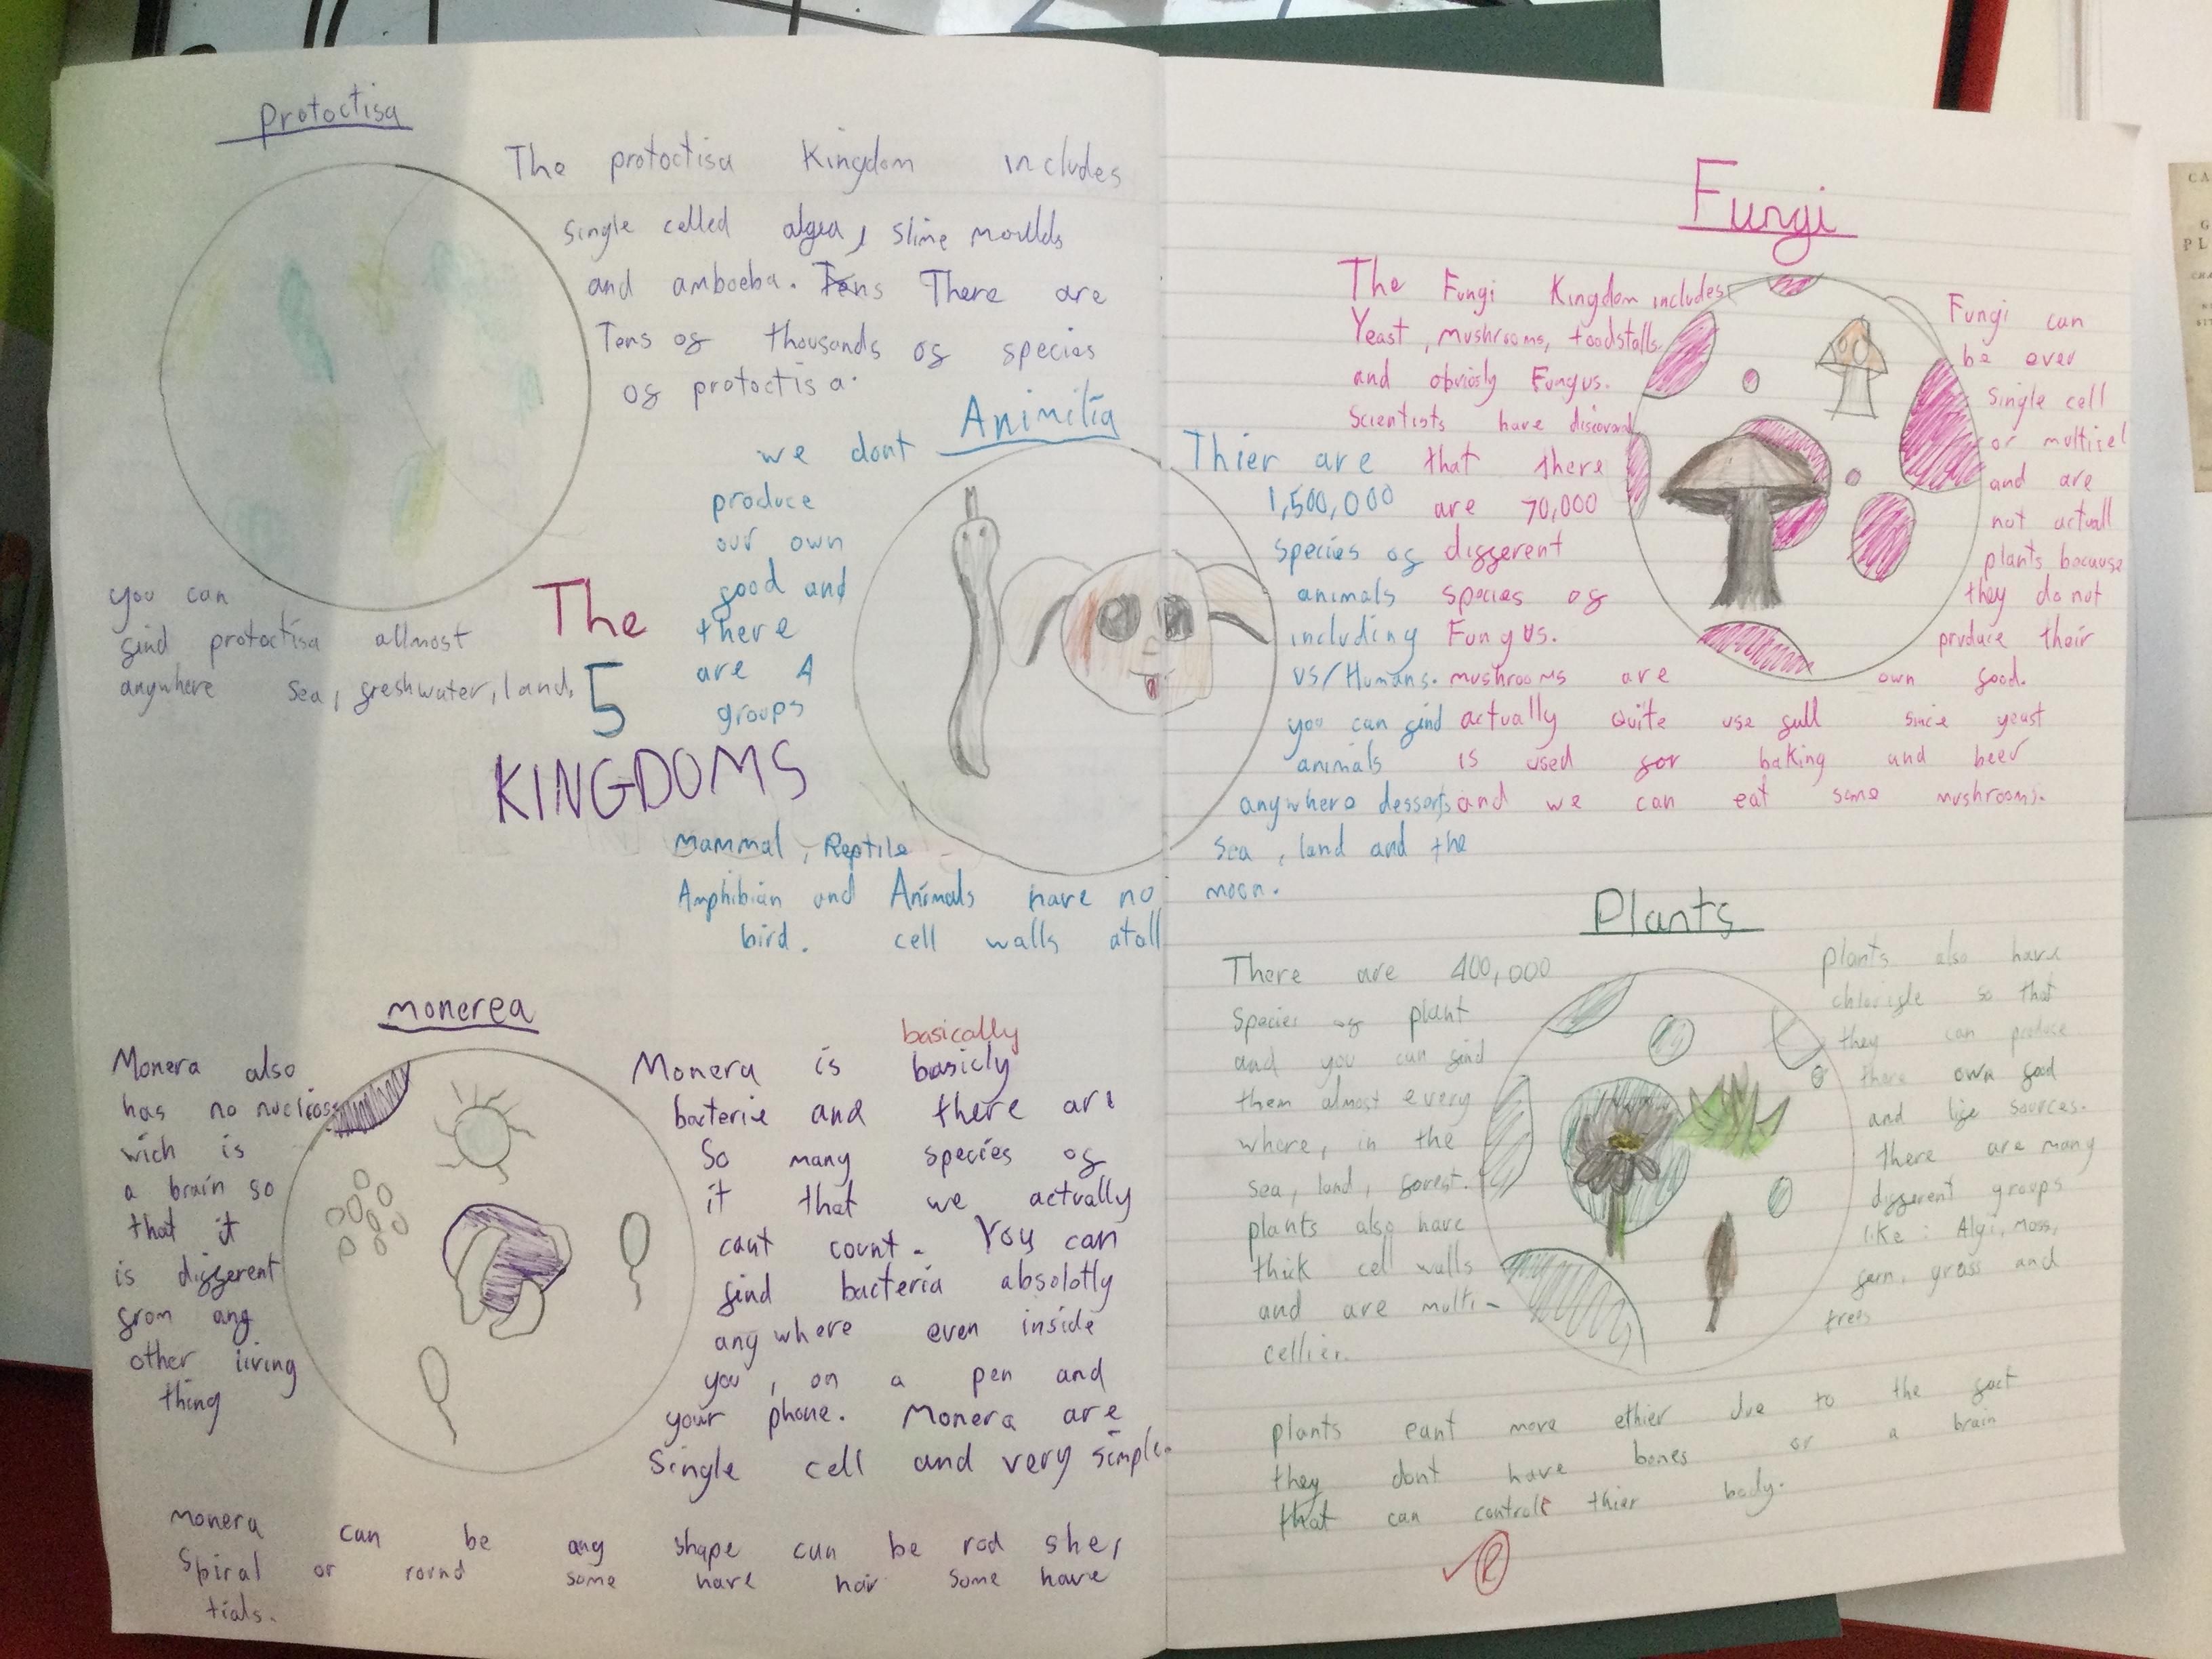 Protoctisa
The protoctisa Kingdom includes
single celled algea, slime moulds
and amboeba. Tens There are
Tens of thousands of species
of protoctisa.
you can
find protoctisa allmost
anywhere sea, freshwater, land,
The
5
KINGDOMS
Animilia
we dont
produce
our own
food and
there
are 4
groups
Mammal, Reptile
Amphibian and
bird.
Animals have no
cell walls atall
Thier are
1,500,000
species of
animals
including
us/Humans.
you can find
animals
anywhere desserts,
sea, land and the
moon.
monerea
Monera also
has no nucleoss
wich is
a brain so
that it
is different
from any
other living
thing
basically
Monera is basicly
bacteria and there are
So many species of
it that we actually
cant count. You can
find bacteria absolotly
any where even inside
you, on a pen and
your phone. Monera are
Single cell and very simple.
Monera can be any shape can be rod sher
spiral or round some have hair some have
tials.
Fungi
The Fungi Kingdom includes
Yeast, mushrooms, toodstalls
and obviosly Fungus.
Scientists have discoverd
that there
are 70,000
different
species of
Fungus.
mushrooms are
actually quite use full since yeast
is used for baking and beer
and we can eat some mushrooms.
Fungi can
be over
single cell
or multicel
and are
not actuall
plants because
they do not
produce their
own food.
Plants
There are 400,000
species of plant
and you can find
them almost every
where, in the
sea, land, forest.
plants also have
thick cell walls
and are multi-
cellier.
plants also have
so that
they can produce
there own food
and life sources.
there are many
different groups
like: Algi, Moss,
fern, grass and
trees
plants cant move ethier due to the fact
they dont have bones or a brain
that can controle thier body.
R